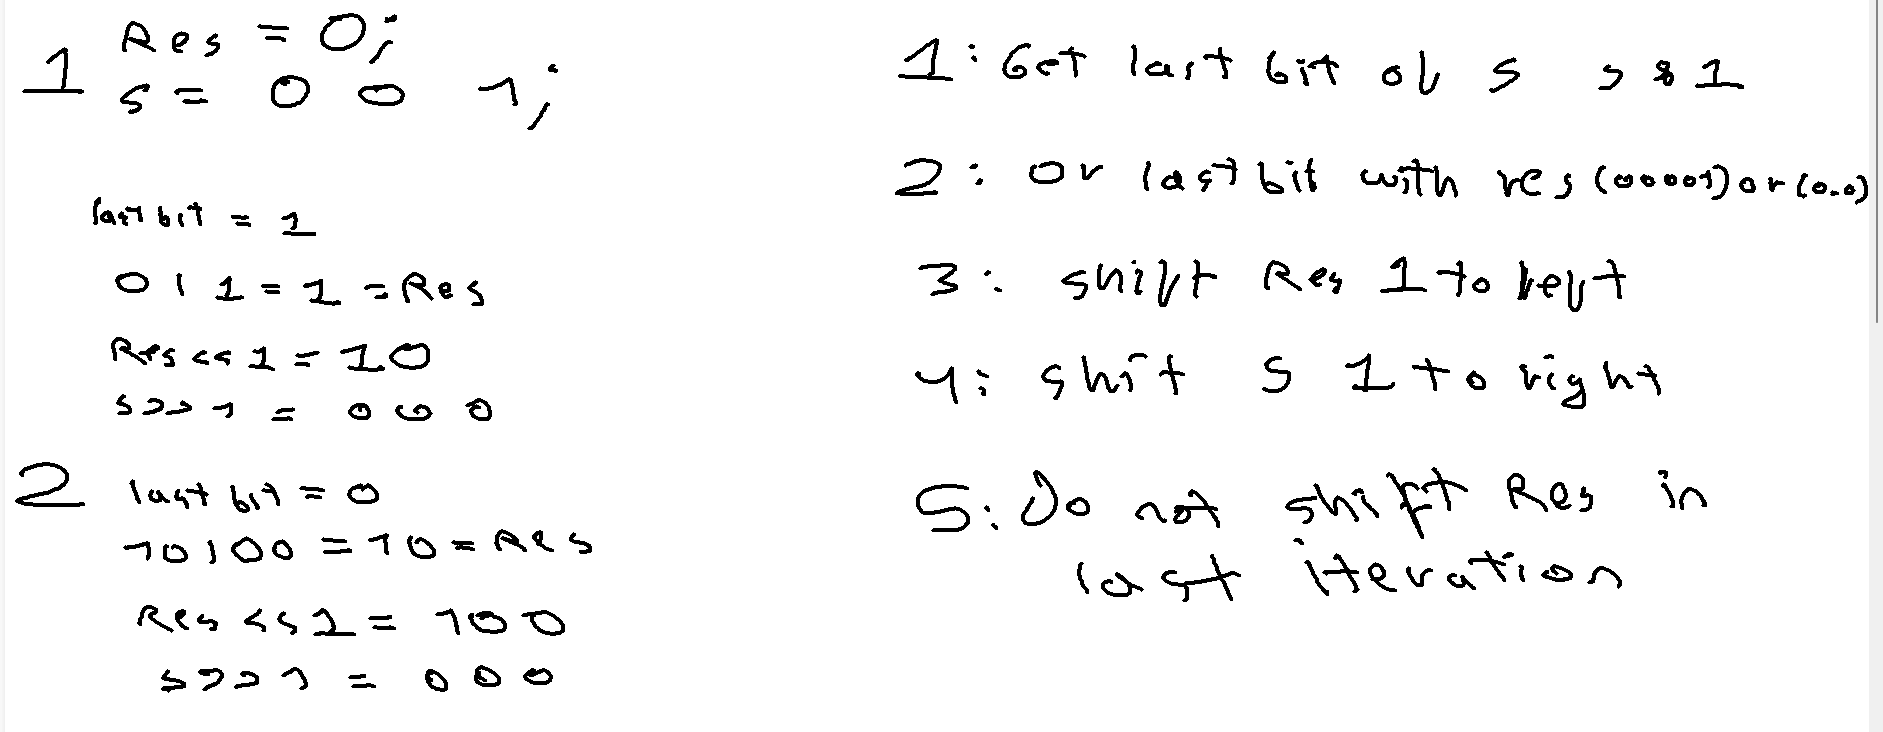 1 Res = 0;
s = 0 0 1;
last bit = 1
0 | 1 = 1 = Res
Res << 1 = 10
s >> 1 = 0 0 0
2 last bit = 0
10 | 00 = 10 = Res
Res << 1 = 100
s >> 1 = 0 0 0
1: Get last bit of s s & 1
2: or last bit with res (00001) or (0..0)
3: shift Res 1 to left
4: shit s 1 to right
5: Do not shift Res in
last iteration